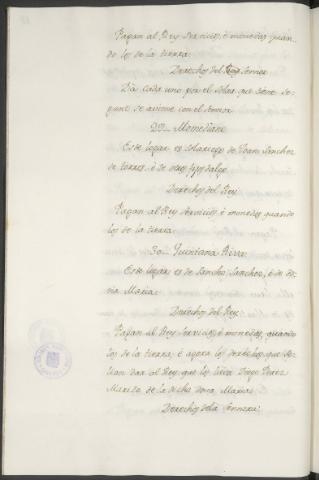 Pagan al Rey servicios, è monedas quan-
do los de la tierra.
Derechos del Señor
Da cada uno por el solar que tiene se-
gun se aviene con el Señor
29.. Momediano
Este lugar es solariego de Joan Sanchez
de Torres, è de otros fijosdalgo
Derechos del Rey
Pagan al Rey servicios, è monedas quando
los de la tierra.
30.. Quintana Rivro.
Este lugar es de Sancho Sanchez, è de Do-
ña Maria.
Derechos del Rey.
Pagan al Rey servicios, è monedas, quando
los de la tierra, è agora los derechos que so-
lian dar al Rey, que los lieva Diego Perez
Marido de la dicha doña Maria.
Derechos de la Señora.